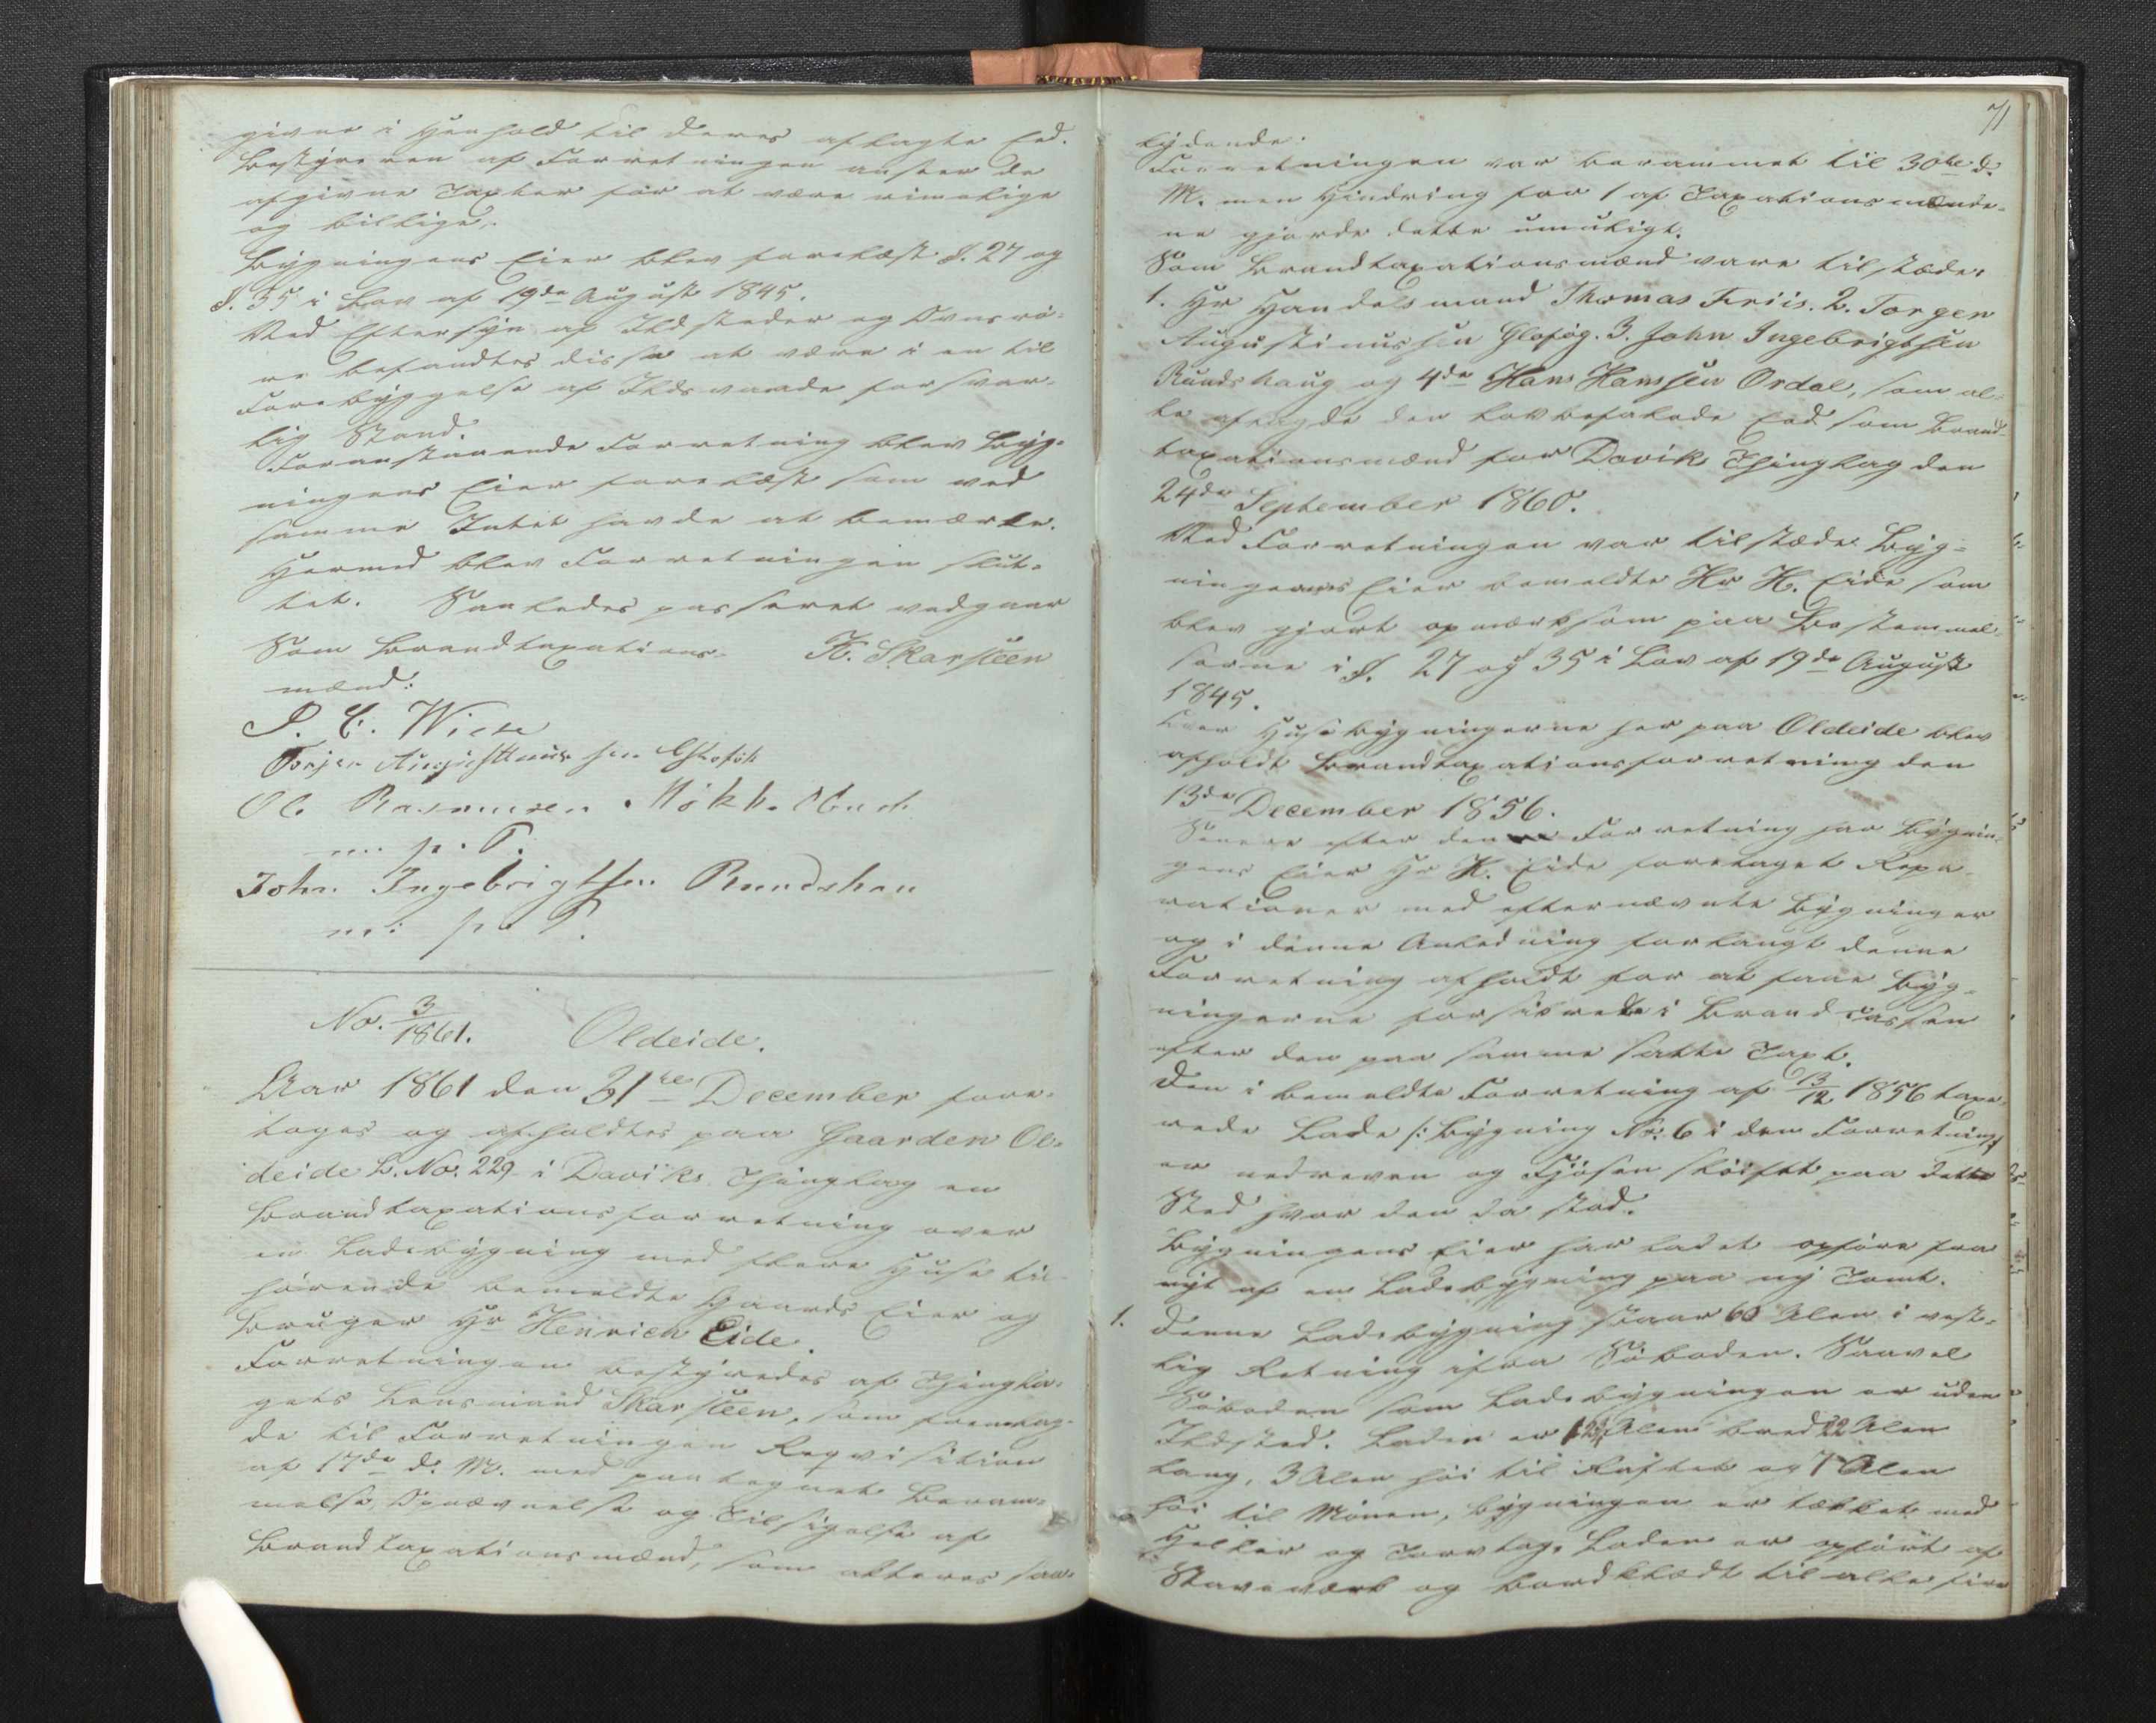 givne i Henhold til deres aflagte Eed.
Bestyreren af Forretningen anseer de
afgivne Taxter for at være rimelige
og billige.
Bygningens Eier blev forelæst §. 27 og
§. 35 i Lov af 19de August 1845.
Ved Eftersyn af Ildsteder og Ovnsrö-
re befandtes disse at være i en til
Forebyggelse af Ildsvaade forsvar-
lig Stand.
Foranstaaende Forretning blev Byg-
ningens Eier forelæst som ved
samme Intet havde at bemærke.
Hermed blev Forretningen slut-
tet. Saaledes passeret vedgaaer
Som Brandtaxations- K. Skarsteen
mænd:
P. C. Wiese
Torjer Augustinussen
Ole Rasmusen
m. p. P.
John Ingebrigtsen Rundshau
m: p. P.
No. 3/1861. Oldeide.
Aar 1861 den 31te December fore-
toges og afholdtes paa Gaarden Ol-
deide L. No. 229 i Daviks Thinglag en
Brandtaxationsforretning over
en Ladebygning med flere Huse til-
hörende bemeldte Gaards Eier og
Bruger Hr Henrich Eide.
Forretningen bestyredes af Thingla-
gets Lensmand Skarsteen, som fremlag-
de til Forretningen Reqvisition
af 17de d. M. med paategnet Beram-
melse, Opnævnelse og Tilsigelse af
Brandtaxationsmænd, som atteres saa-
71
lydende:
Forretningen var berammet til 30te d.
M. men Hindring for 1 af Taxationsmænde-
ne gjorde dette umuligt.
Som Brandtaxationsmænd vare tilstæde:
1. Hr Handelsmand Thomas Friis. 2. Torger
Augustinussen Glofög. 3. John Ingebrigtsen
Rundshaug og 4de Hans Hanssen Ordal, som al-
le aflagde den lovbefalede Eed som Brand-
taxationsmænd for Davik Thinglag den
24de September 1860.
Ved Forretningen var tilstæde Byg-
ningernes Eier bemeldte Hr H. Eide som
blev gjort opmærksom paa Bestemmel-
serne i §. 27 og 35 i Lov af 19de August
1845.
Over Husebygningerne her paa Oldeide blev
afholdt Brandtaxationsforretning den
13de December 1856.
Senere efter den Forretning har Bygnin-
gens Eier Hr H. Eide foretaget Repa-
rationer med efternævnte Bygninger
og i denne Anledning forlangt denne
Forretning afholdt for at faae Byg-
ningerne forsikrede i Brandcassen
efter den paa samme satte Taxt.
Den i bemeldte Forretning af 13/12 1856 taxe-
rede Lade /: Bygning No. 6 i den Forretning
er nedreven og Fjösen flöittet paa dette
Sted hvor den da stod.
Bygningens Eier har ladet opföre fra
nyt af en Ladebygning paa ny Tomt.
1. Denne Ladebygning staar 60 Alen i vest-
lig Retning ifra Söboden. Saavel
Söboden som Ladebygningen er uden
Ildsted. Laden er Alen bred 22 Alen
lang, 3 Alen höi til Raftet og 7 Alen
höi til Mönen, Bygningen er tækket med
Heller og Torvtag. Laden er opfört af
Staveværk og bordklædt til alle fire